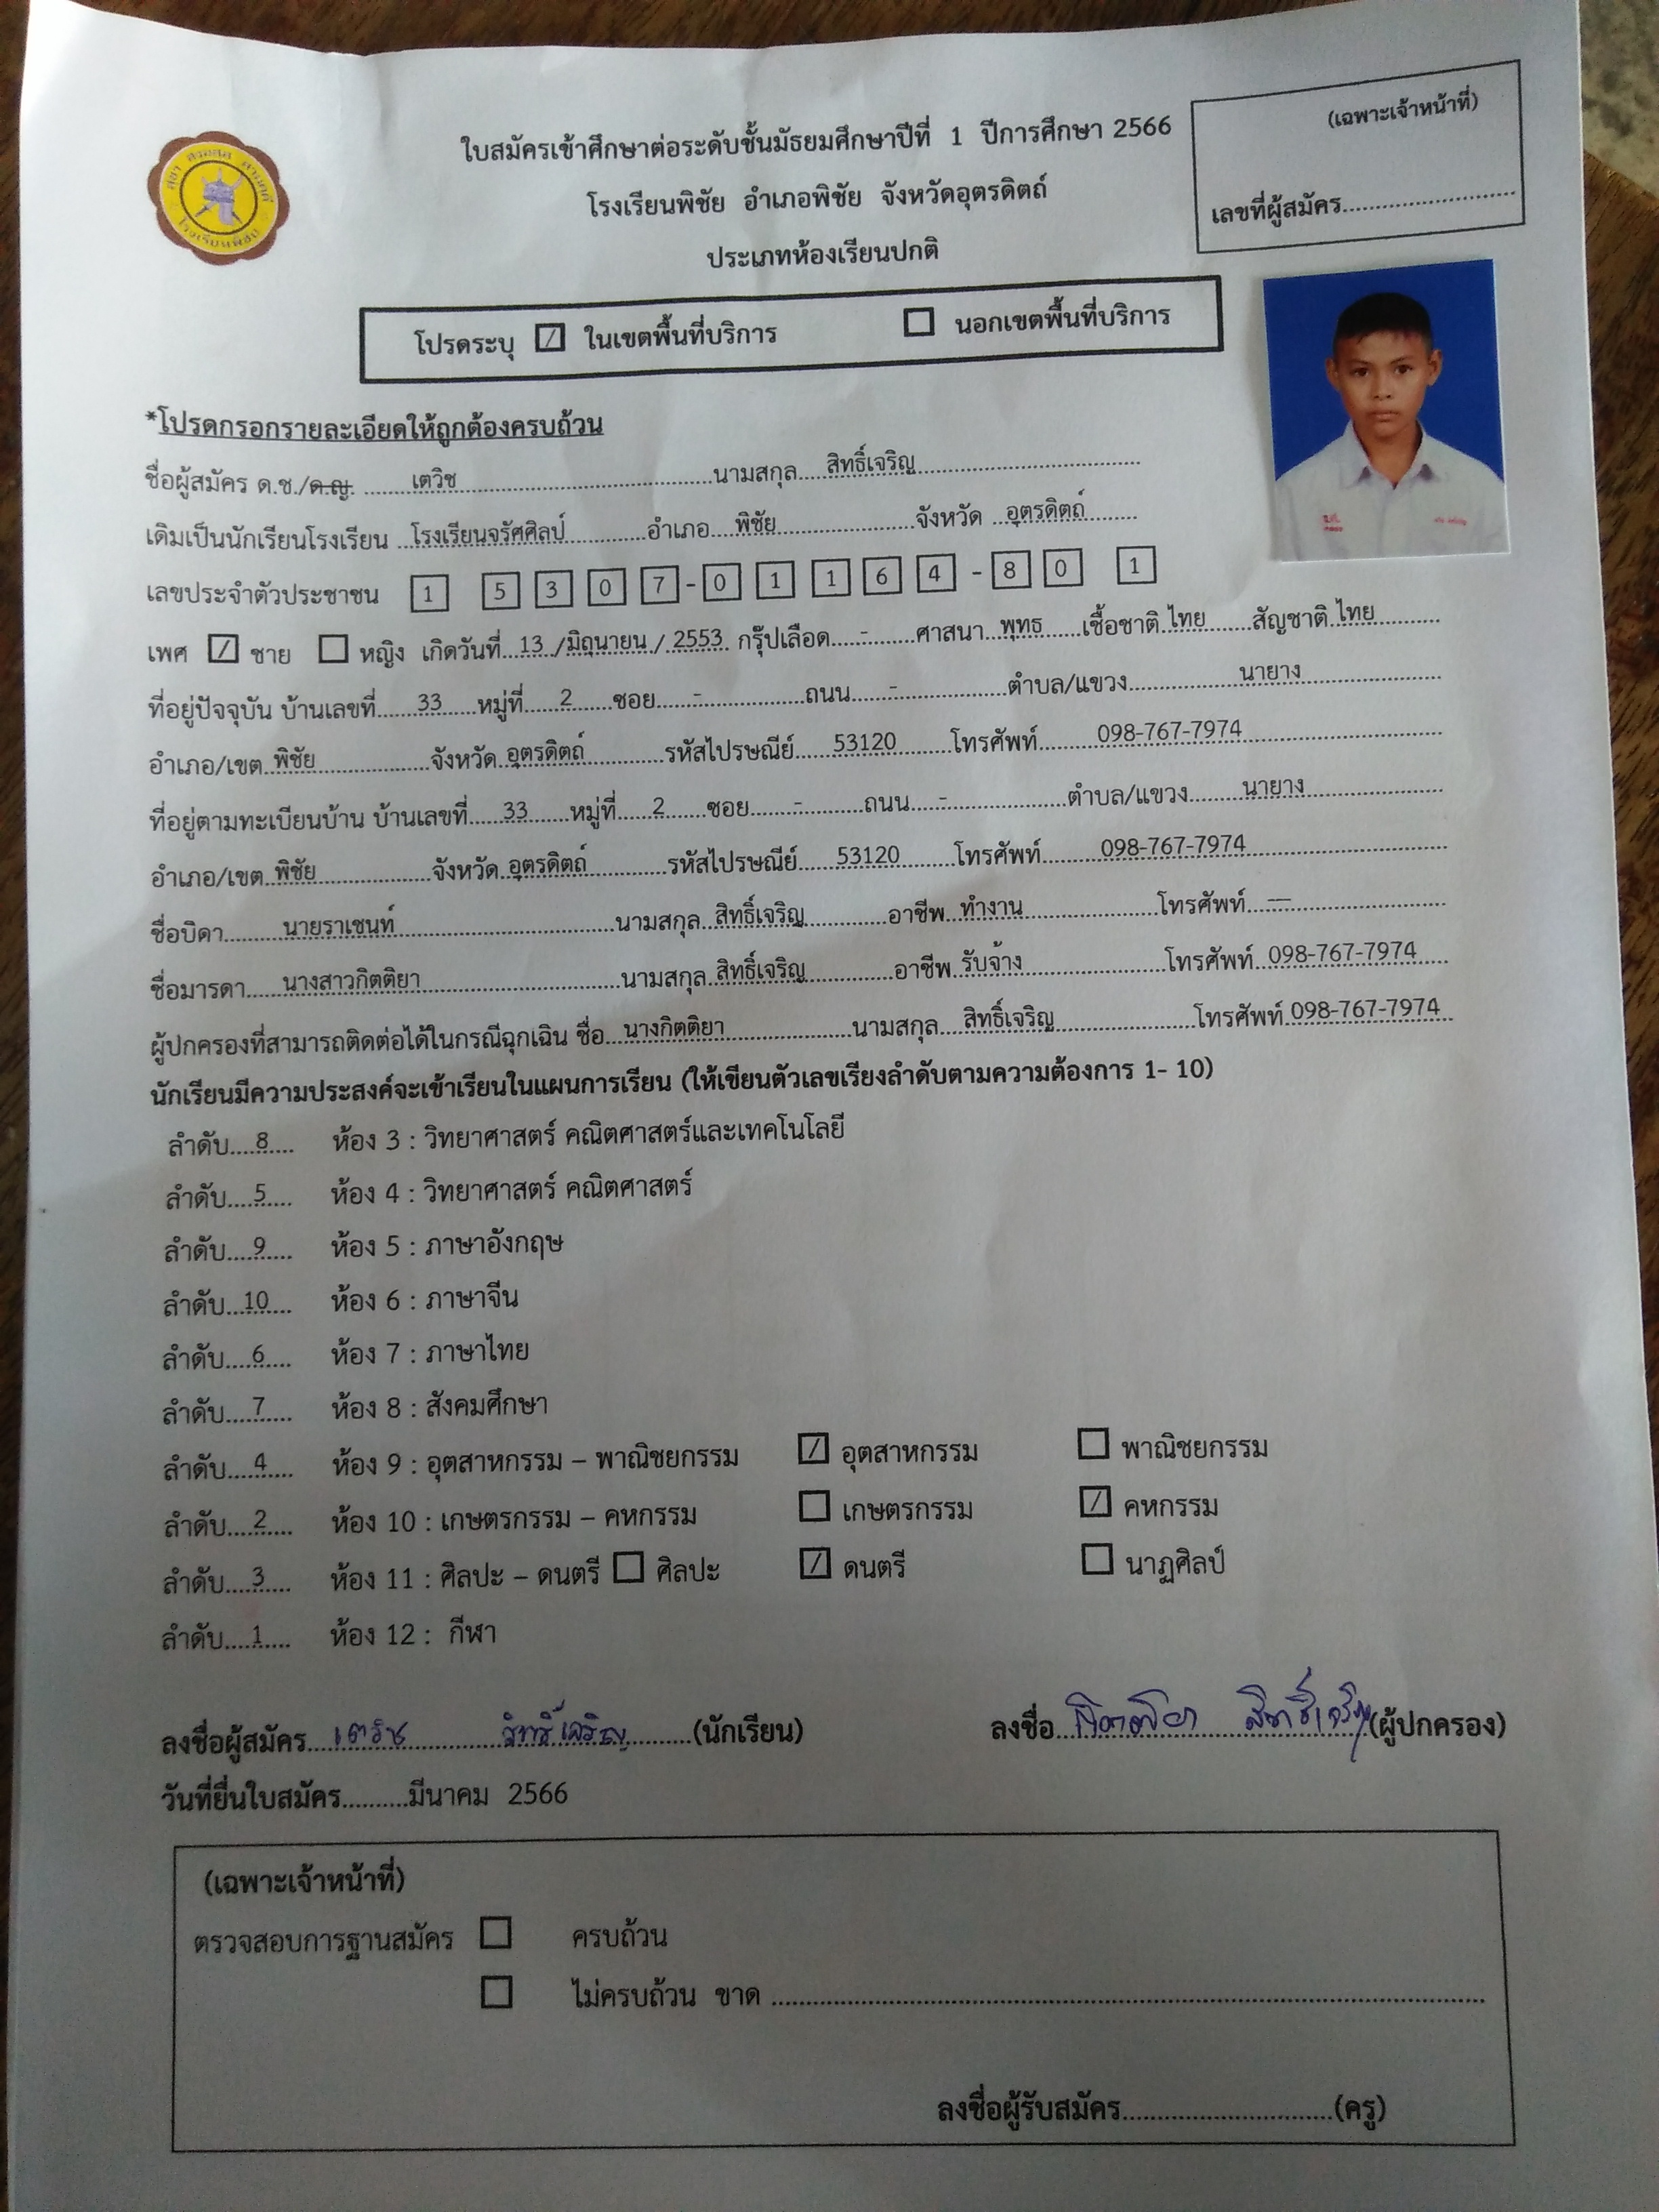 ใบสมัครเข้าศึกษาต่อระดับชั้นมัธยมศึกษาปีที่ 1 ปีการศึกษา 2566
(เฉพาะเจ้าหน้าที่)
โรงเรียนพิชัย อำเภอพิชัย จังหวัดอุตรดิตถ์
เลขที่ผู้สมัคร..........................
ประเภทห้องเรียนปกติ
โรงเรียนพิชัย
โปรดระบุ ☑ ในเขตพื้นที่บริการ ☐ นอกเขตพื้นที่บริการ
*โปรดกรอกรายละเอียดให้ถูกต้องครบถ้วน
ชื่อผู้สมัคร ด.ช./ด.ญ. ........เตวิช........นามสกุล....สิทธิ์เจริญ........
เดิมเป็นนักเรียนโรงเรียน ..โรงเรียนจรัศศิลป์........อำเภอ....พิชัย........จังหวัด ..อุตรดิตถ์........
เลขประจำตัวประชาชน 1 5 3 0 7 - 0 1 1 6 4 - 8 0 1
เพศ ☑ ชาย ☐ หญิง เกิดวันที่...13 /มิถุนายน / 2553. กรุ๊ปเลือด.....-.......ศาสนา...พุทธ......เชื้อชาติ.ไทย.......สัญชาติ.ไทย..........
ที่อยู่ปัจจุบัน บ้านเลขที่......33......หมู่ที่.....2......ซอย......-........ถนน......-........ตำบล/แขวง........นายาง........
อำเภอ/เขต..พิชัย........จังหวัด..อุตรดิตถ์........รหัสไปรษณีย์.....53120.......โทรศัพท์........098-767-7974........
ที่อยู่ตามทะเบียนบ้าน บ้านเลขที่.....33......หมู่ที่.....2......ซอย......-........ถนน.....-........ตำบล/แขวง........นายาง........
อำเภอ/เขต..พิชัย........จังหวัด..อุตรดิตถ์........รหัสไปรษณีย์.....53120.......โทรศัพท์........098-767-7974........
ชื่อบิดา........นายราเชนท์........นามสกุล..สิทธิ์เจริญ........อาชีพ..ทำงาน........โทรศัพท์...—........
ชื่อมารดา.....นางสาวกิตติยา........นามสกุล.สิทธิ์เจริญ........อาชีพ.รับจ้าง........โทรศัพท์..098-767-7974....
ผู้ปกครองที่สามารถติดต่อได้ในกรณีฉุกเฉิน ชื่อ...นางกิตติยา........นามสกุล....สิทธิ์เจริญ........โทรศัพท์.098-767-7974..
นักเรียนมีความประสงค์จะเข้าเรียนในแผนการเรียน (ให้เขียนตัวเลขเรียงลำดับตามความต้องการ 1- 10)
ลำดับ....8..... ห้อง 3 : วิทยาศาสตร์ คณิตศาสตร์และเทคโนโลยี
ลำดับ....5..... ห้อง 4 : วิทยาศาสตร์ คณิตศาสตร์
ลำดับ....9..... ห้อง 5 : ภาษาอังกฤษ
ลำดับ...10.... ห้อง 6 : ภาษาจีน
ลำดับ....6..... ห้อง 7 : ภาษาไทย
ลำดับ....7..... ห้อง 8 : สังคมศึกษา
ลำดับ....4..... ห้อง 9 : อุตสาหกรรม – พาณิชยกรรม ☑ อุตสาหกรรม ☐ พาณิชยกรรม
ลำดับ....2..... ห้อง 10 : เกษตรกรรม – คหกรรม ☐ เกษตรกรรม ☑ คหกรรม
ลำดับ....3..... ห้อง 11 : ศิลปะ – ดนตรี ☐ ศิลปะ ☑ ดนตรี ☐ นาฏศิลป์
ลำดับ....1..... ห้อง 12 : กีฬา
ลงชื่อผู้สมัคร....เตวิช สิทธิ์เจริญ........(นักเรียน) ลงชื่อ..กิตติยา สิทธิ์เจริญ(ผู้ปกครอง)
วันที่ยื่นใบสมัคร..........มีนาคม 2566
(เฉพาะเจ้าหน้าที่)
ตรวจสอบการฐานสมัคร ☐ ครบถ้วน
☐ ไม่ครบถ้วน ขาด ................................................................
ลงชื่อผู้รับสมัคร..............................(ครู)